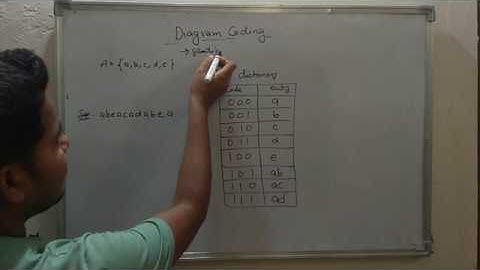 Diagram Coding
A = {a,b,c,d,e}
dictionary
Code Entry
Seq abeacadabea
000 a
001 b
010 c
011 d
100 e
101 ab
110 ac
111 ad